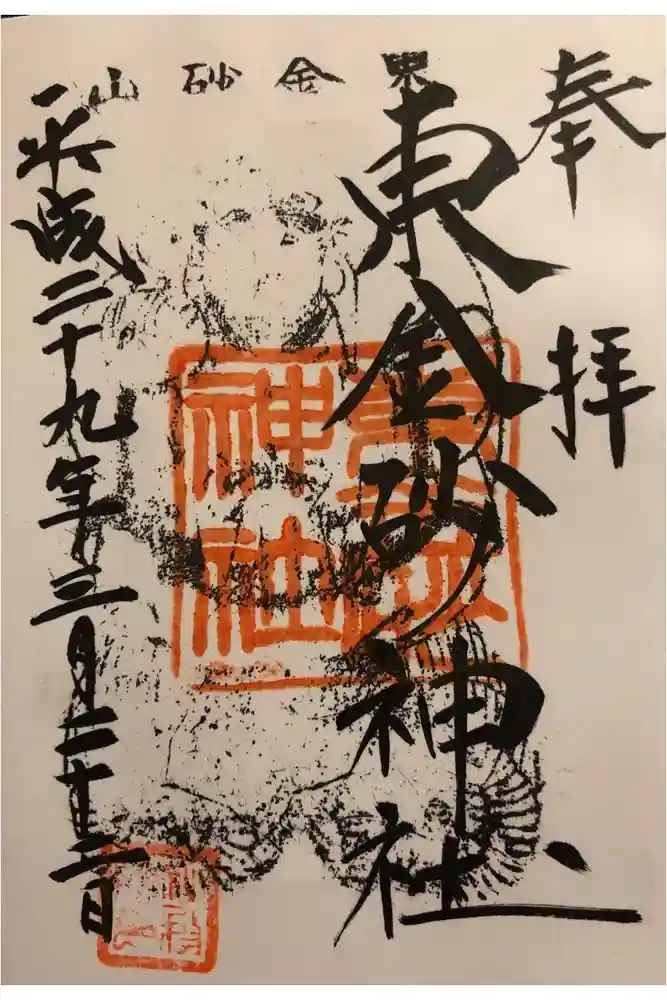 奉拝
東金砂山
東金砂神社
神社
平成二十九年三月二十二日